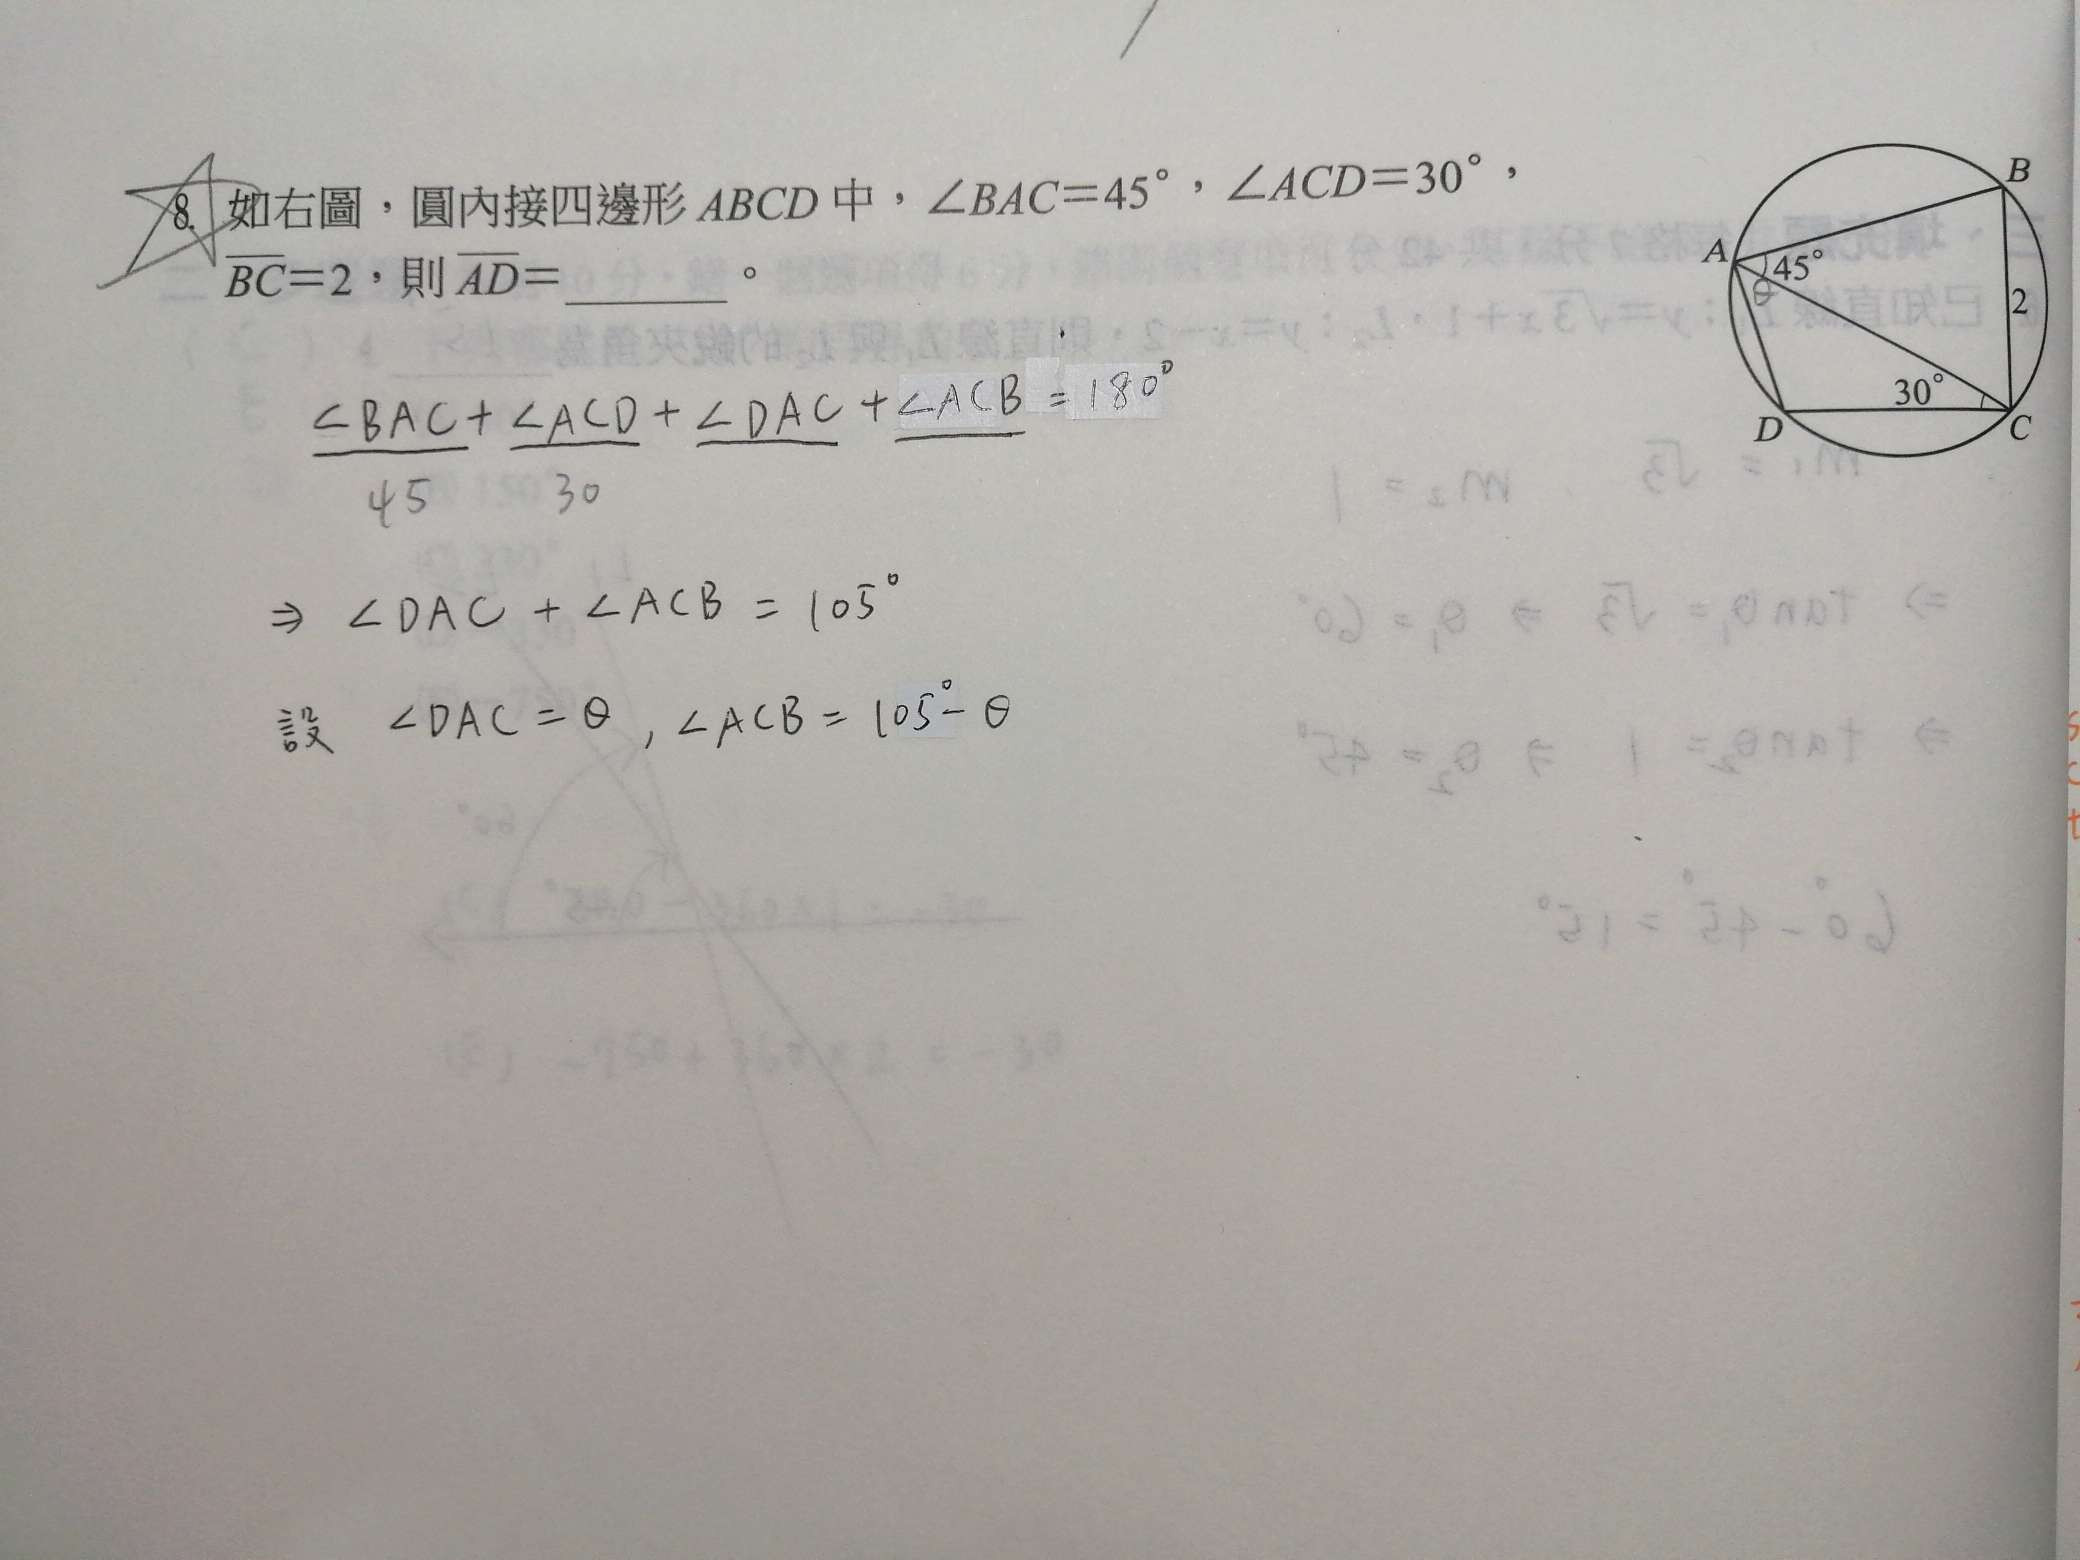 8. 如右圖，圓內接四邊形 ABCD 中，∠BAC＝45°，∠ACD＝30°，
BC＝2，則 AD＝______。
A
B
C
D
45°
θ
30°
2
∠BAC + ∠ACD + ∠DAC + ∠ACB = 180°
45 30
⇒ ∠DAC + ∠ACB = 105°
設 ∠DAC = θ , ∠ACB = 105° - θ